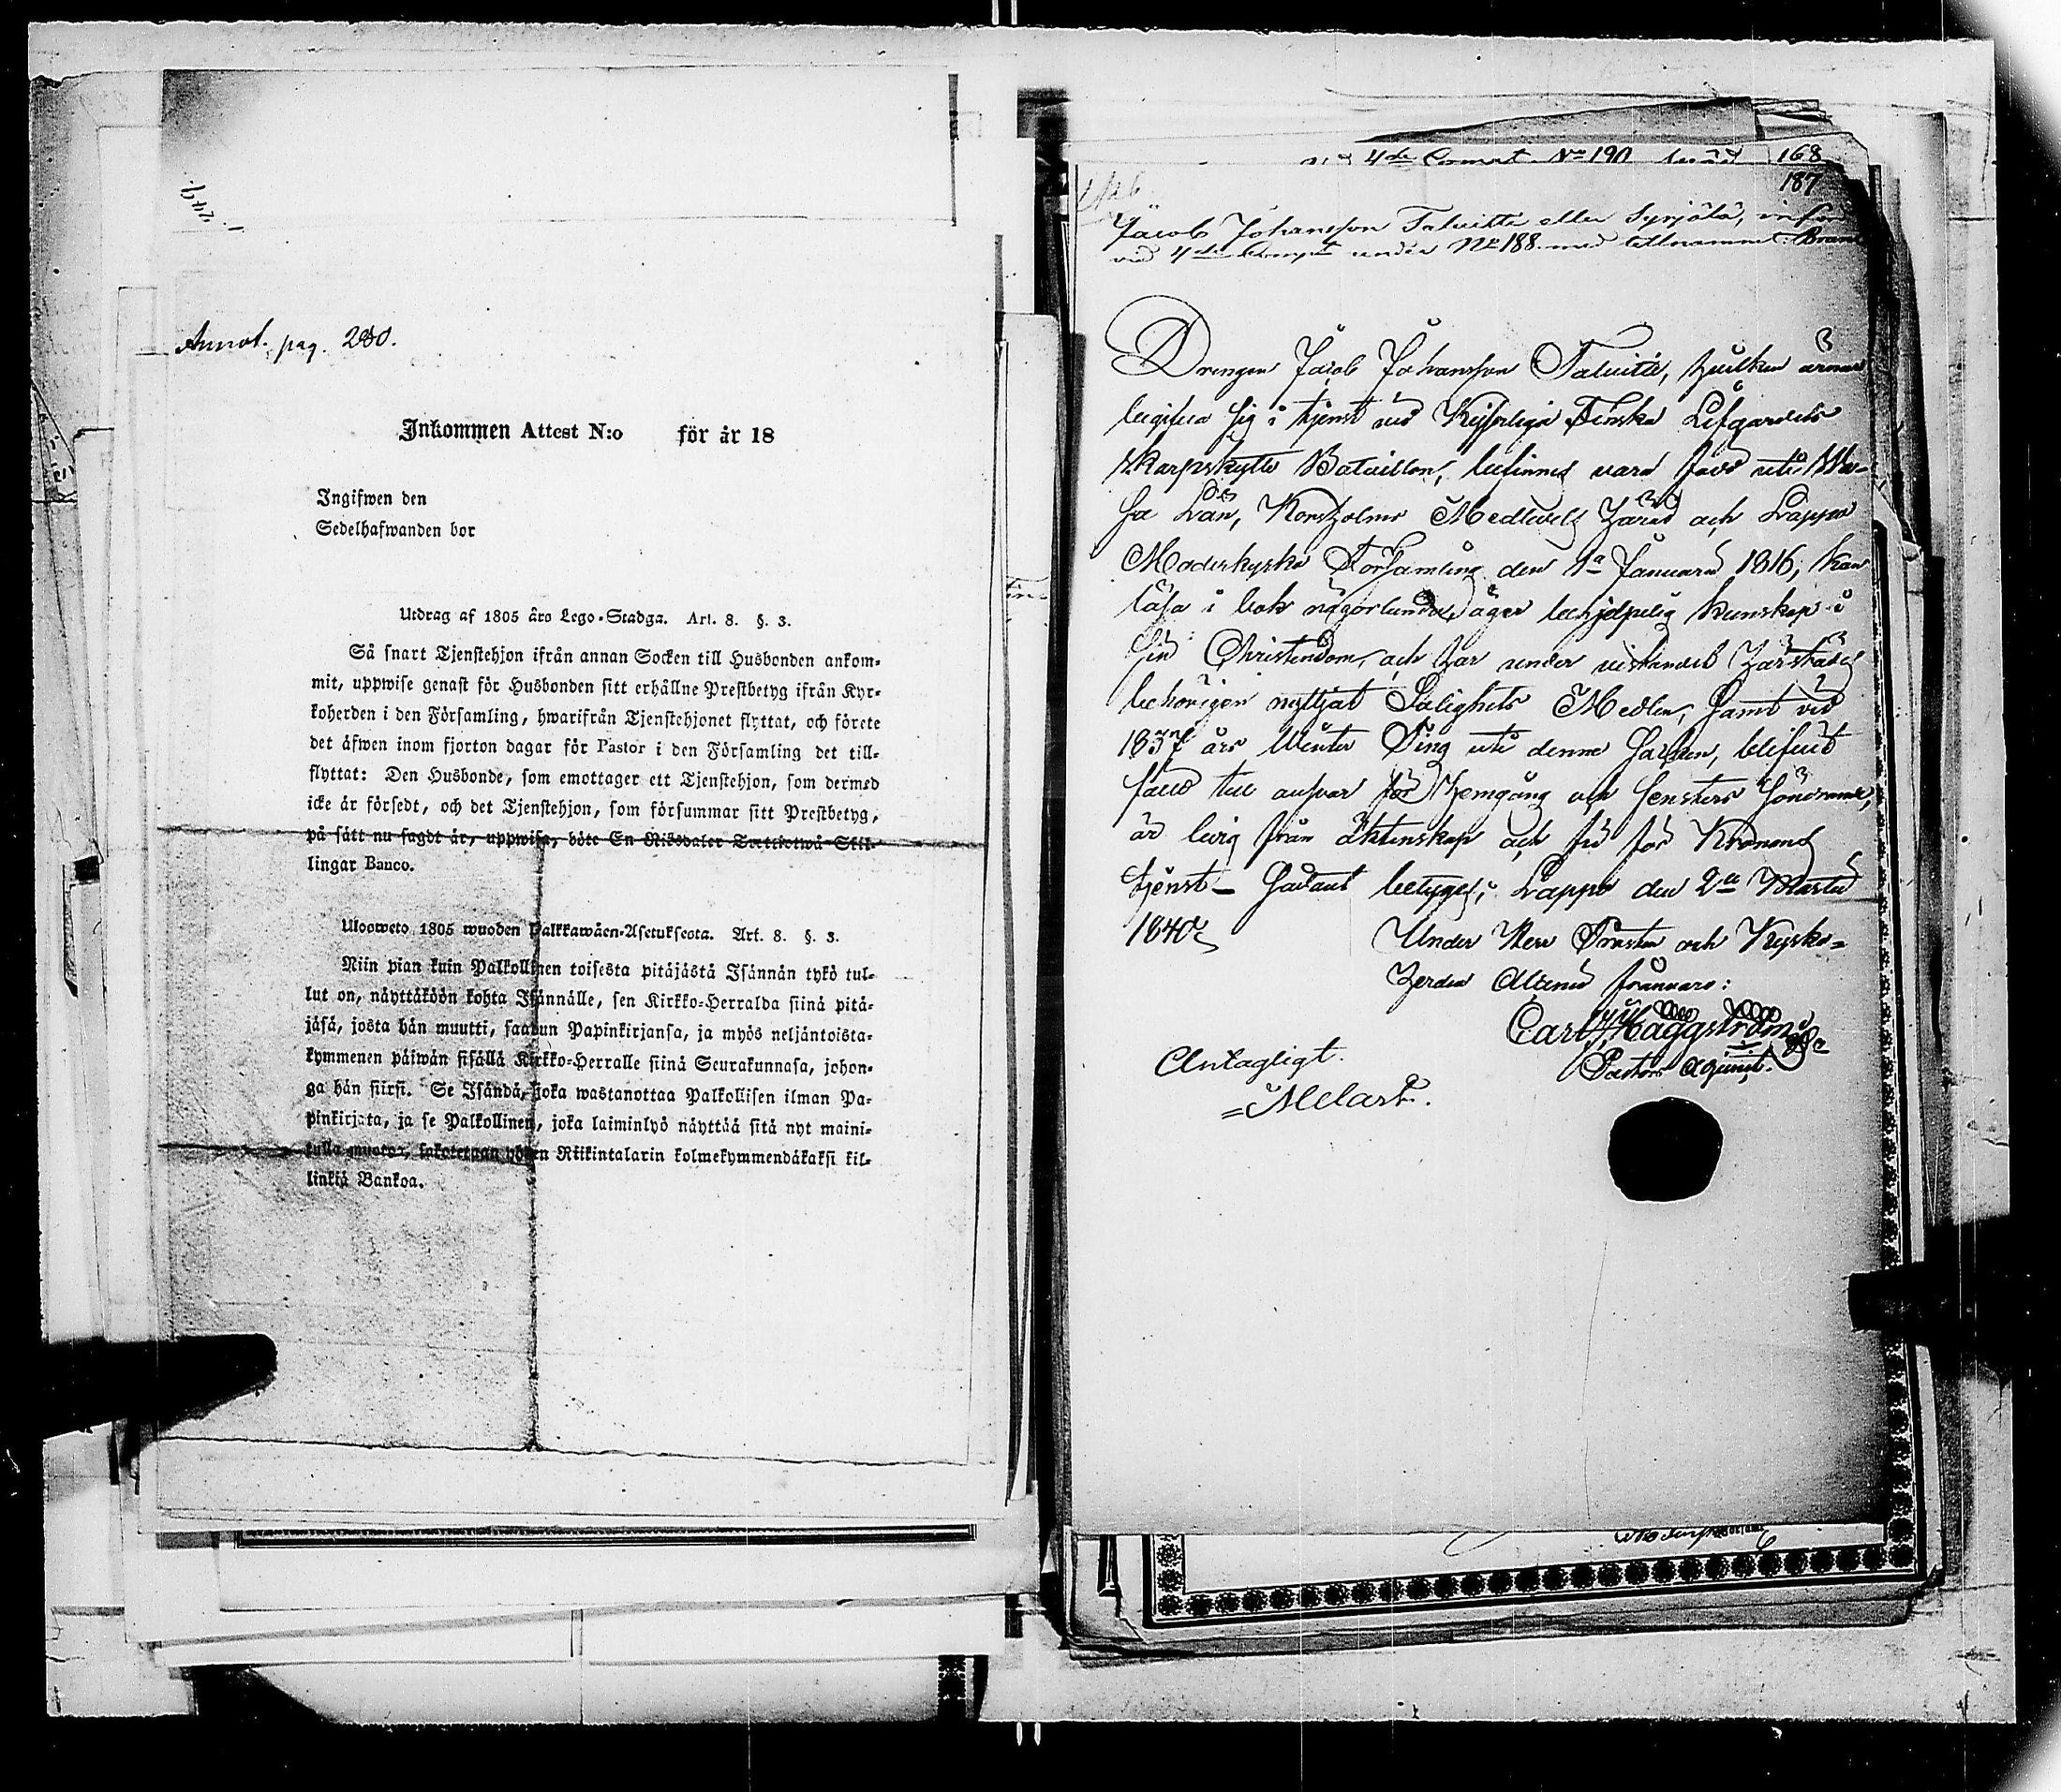 Annot. pag. 280.
Inkommen Attest N:o för år 18
Ingifwen den
Sedelhafwanden bor
Utdrag af 1805 års Lego-Stadga. Art. 8. §. 3.
Så snart Tjenstehjon ifrån annan Socken till Husbonden ankom-
mit, uppwise genast för Husbonden sitt erhållne Prestbetyg ifrån Kyr-
koherden i den Församling, hwarifrån Tjenstehjonet flyttat, och förete
det äfwen inom fjorton dagar för Pastor i den Församling det till-
flyttat: Den Husbonde, som emottager ett Tjenstehjon, som dermed
icke är försedt, och det Tjenstehjon, som försummar sitt Prestbetyg,
på sätt nu sagdt är, uppwisa, böte En Riksdaler Trettiotwå Skil-
lingar Banco.
Ulosweto 1805 wuoden Palkkawäen-Asetuksesta. Art. 8. §. 3.
Niin pian kuin Palkollinen toisesta pitäjästä Isännän tykö tul-
lut on, näyttäköön kohta Isännälle, sen Kirkko-Herralda siinä pitä-
jäsä, josta hän muutti, saadun Papinkirjansa, ja myös neljäntoista-
kymmenen päiwän sisällä Kirkko-Herralle siinä Seurakunnasa, johon-
ga hän siirsi. Se Isändä, joka wastanottaa Palkollisen ilman Pa-
pinkirjata, ja se Palkollinen, joka laiminlyö näyttää sitä nyt maini-
tulla muotoa, sakotetaan yhden Riikintalarin kolmekymmendäkaksi kil-
linkiä Bankoa.
4de Comp: No 190 168
187
Jacob Johansson Talvitie eller Syrjälä, införd
vid 4de Compt under No 188 med tillnamnet: Brand
Drengen Jacob Johansson Talvitie, hvilken ärnar
begifva sig i tjenst vid Kejserliga Finska Lifgardets
Skarpskytte Bataillon, befinnes vara född uti Wa-
sa Län, Korsholms Medlerdels Härad och Lappo
Moderkyrko Församling den 1a Januarii 1816, kan
läsa i bok någorlunda, äger behjelpelig kunskap i
sin Christendom, och har under vistandet härstädes
behörigen nyttjat Salighets Medlen, samt vid
1837 års Winter Ting uti denne Socken, blifvit
fälld till ansvar för Hemgång och fensters sönd
är ledig från äktenskap och fri för Kronans
tjenst – Sådant betygas, Lappo den 2a Martii
1840.
Under Herr Prosten och Kyrko-
herden frånvaro:
Carl Häggström
Pastors Adjunct.
Antagligt.
=Melart.